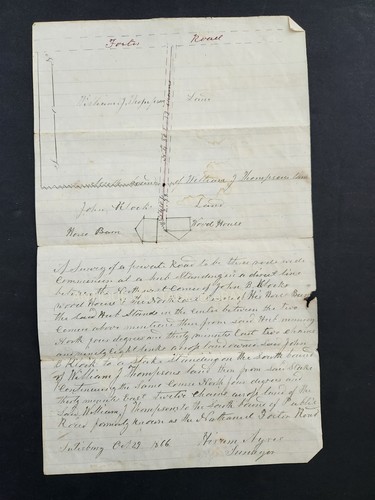 Foster Road
William J Thompson Land
of William J Thompson
John Klock Land
Horse Barn Wood House
A Survey of a private Road to be three rods wide
Commencing at a hub Standing in a direct line
between the Northwest Corner of John B. Klocks
Wood House & The North East Corner of His Horse Barn
the said Hub Stands in the center between the two
Corners above mentioned then from said Hub running
North four degrees and thirty minutes East two chains
and ninety eight links across land owned John
B Klock to a Stake Standing on the South bounds
of William J Thompsons land then from said Stake
Continuing the Same Course North four degrees and
thirty minutes East Twelve Chains across land of the
said William J Thompson to the South bounds of Public
Road formerly known as the Nathaniel Foster Road
Salisbury Oct 29 1866 Hiram Ayres
Surveyor